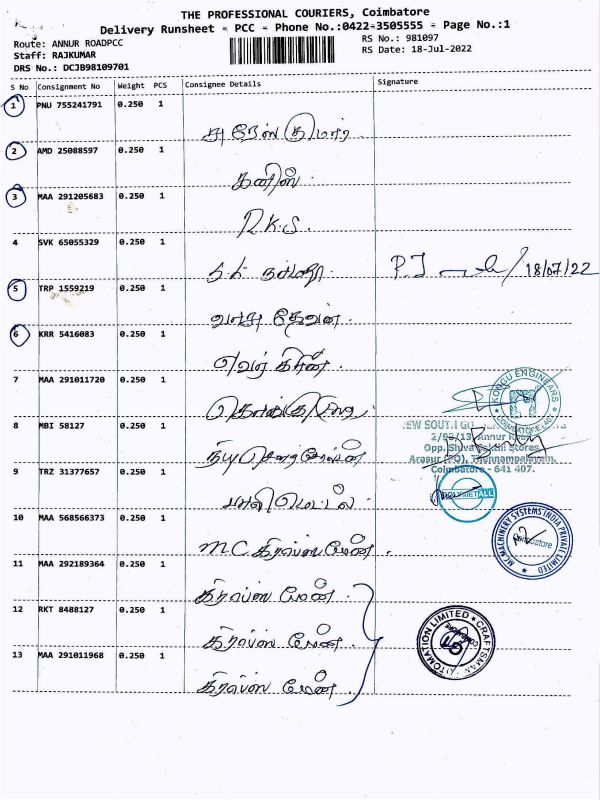 THE PROFESSIONAL COURIERS, Coimbatore
Delivery Runsheet - PCC - Phone No.:0422-3505555 - Page No.:1
Route: ANNUR ROADPCC
RS No.: 981097
Staff: RAJKUMAR
RS Date: 18-Jul-2022
DRS No.: DCJB98109701
S No Consignment No Weight PCS Consignee Details Signature
1 PNU 755241791 0.250 1
சுரேஸ் குமார்
2 AMD 25088597 0.250 1
கனிஸ்
3 MAA 291205683 0.250 1
R.K.S.
4 SVK 65055329 0.250 1
18/07/22
5 TRP 1559219 0.250 1
வாசு தேவன்
6 KRR 5416083 0.250 1
எவர் கிரீன்
7 MAA 291011720 0.250 1
KONGU ENGINEARS
COIMBATORE
8 MBI 58127 0.250 1
2/93/13, Annur
Opp. Shiva Sakthi Stores
Arasur (PO), Thennampalayam,
Coimbatore - 641 407.
9 TRZ 31377657 0.250 1
பாலி மெட்டல்
POLYMETALL
10 MAA 568566373 0.250 1
M.C. கிராப்ஸ் மேன்
MC MACHINERY SYSTEMS INDIA PRIVATE LIMITED
Coimbatore
11 MAA 292189364 0.250 1
கிராப்ஸ் மேன்
12 RKT 8488127 0.250 1
கிராப்ஸ் மேன்
CRAFTSMAN AUTOMATION LIMITED
13 MAA 291011968 0.250 1
கிராப்ஸ் மேன்